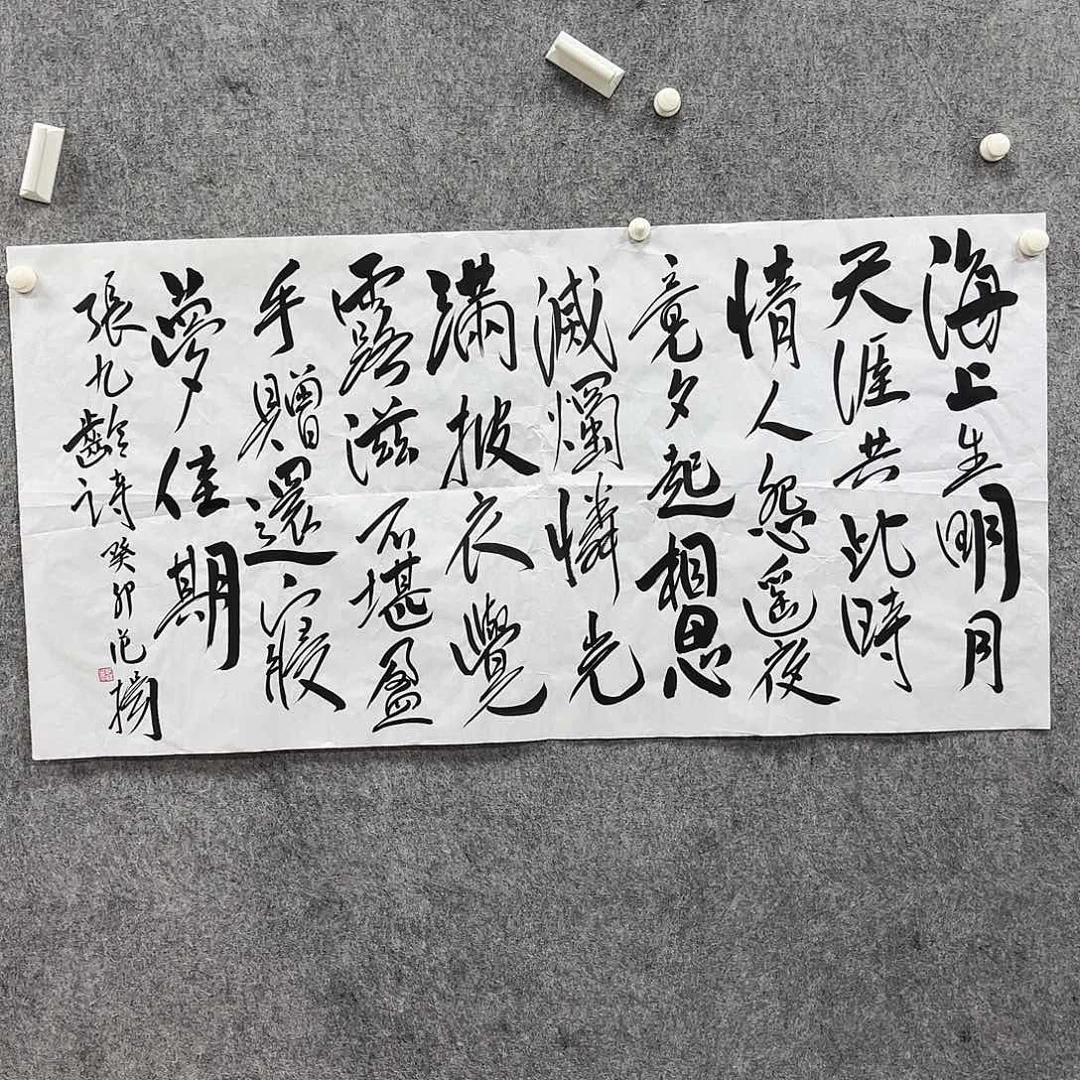 海上生明月
天涯共此時
情人怨遥夜
竟夕起相思
滅燭憐光
滿披衣覺
露滋不堪盈
手贈還寢
夢佳期
張九齡诗癸卯范